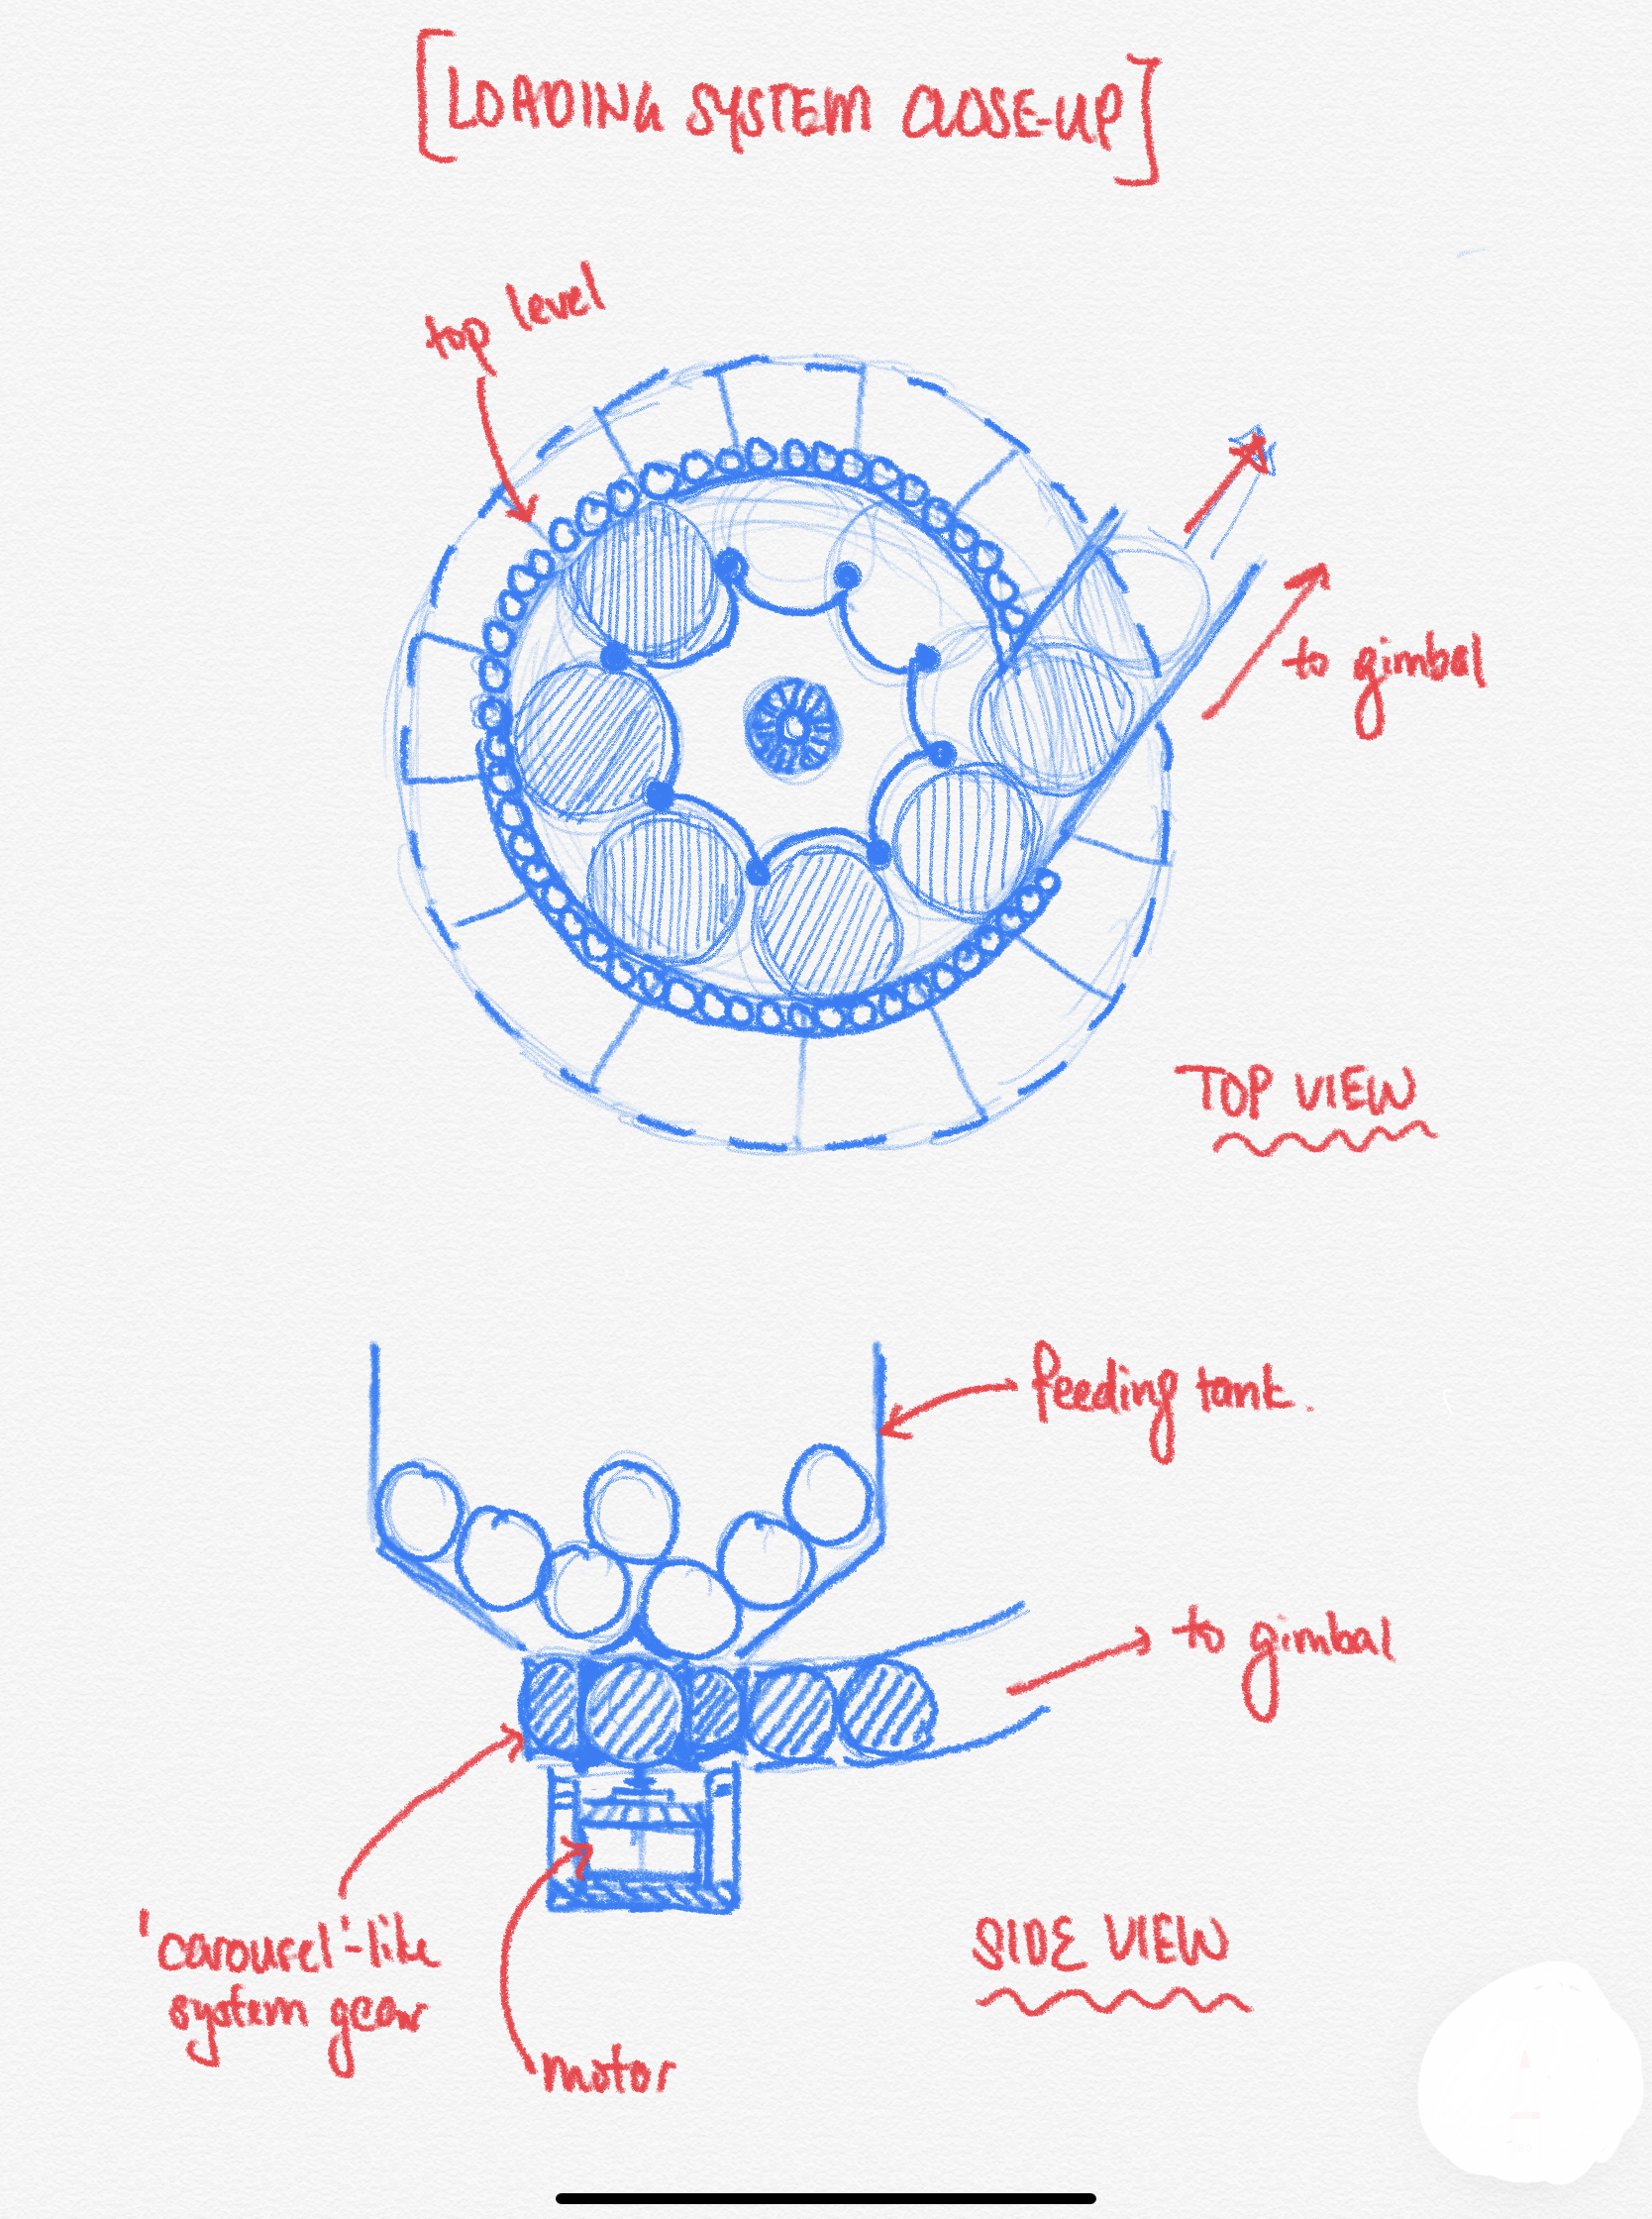 [LOADING SYSTEM CLOSE-UP]
top level
to gimbal
TOP VIEW
feeding tank.
to gimbal
'carousel'-like
system gear
motor
SIDE VIEW